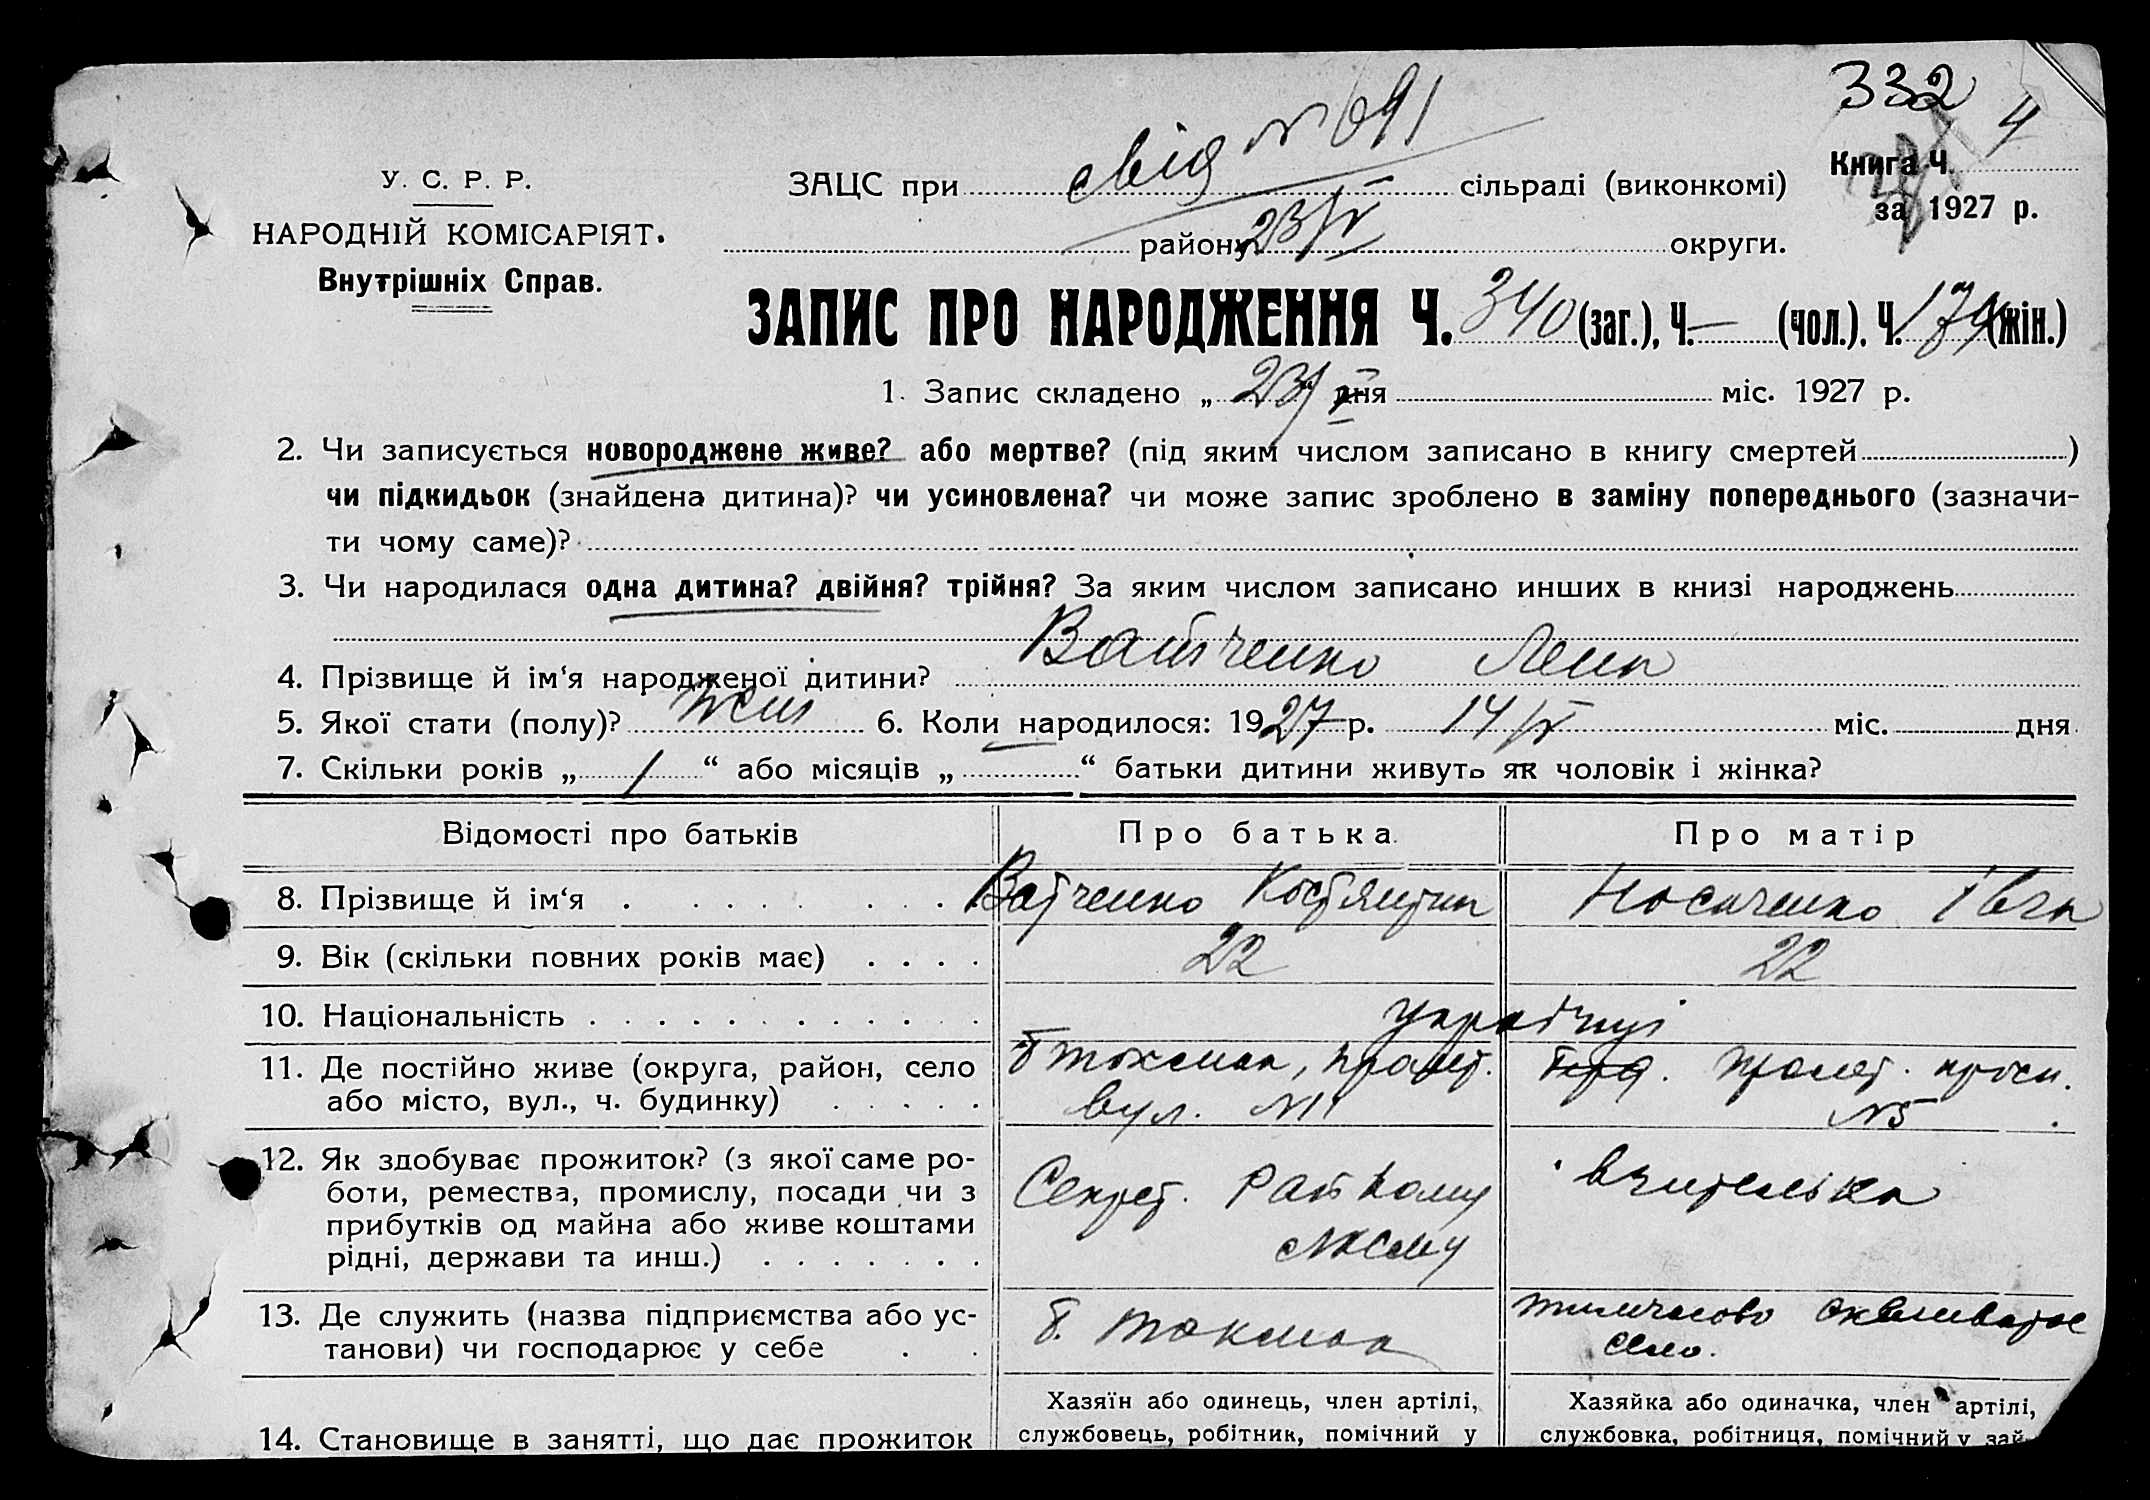 332
4
У. С. Р. Р.
НАРОДНІЙ КОМІСАРІЯТ.
Внутрішніх Справ.
свід № 691
ЗАЦС при сільраді (виконкомі)
Книга Ч.
за 1927 р.
району 23/V округи.
ЗАПИС ПРО НАРОДЖЕННЯ Ч. 340 (заг.), Ч. — (чол.). Ч. 174 (жін.)
1. Запис складено „ 23/V дня міс. 1927 р.
2. Чи записується новороджене живе? або мертве? (під яким числом записано в книгу смертей )
чи підкидьок (знайдена дитина)? чи усиновлена? чи може запис зроблено в заміну попереднього (зазначи-
ти чому саме)?
3. Чи народилася одна дитина? двійня? трійня? За яким числом записано инших в книзі народжень
4. Прізвище й ім‘я народженої дитини? Ватченко
5. Якої стати (полу)? жін 6. Коли народилося: 1927 р. 14/V міс. дня
7. Скільки років „ 1 “ або місяців „ “ батьки дитини живуть як чоловік і жінка?
Відомості про батьків Про батька. Про матір
8. Прізвище й ім‘я Ватченко Костянтин Носаченко
9. Вік (скільки повних років має) 22 22
10. Національність українці
11. Де постійно живе (округа, район, село Токмак, пролет. пролет.
або місто, вул., ч. будинку) вул. № 11 № 5
12. Як здобуває прожиток? (з якої саме ро-
боти, ремества, промислу, посади чи з Секрет. Райкому вчителька
прибутків од майна або живе коштами
рідні, держави та инш.) ЛКСМУ
13. Де служить (назва підприємства або ус- тимчасово
танови) чи господарює у себе Б. Токмак село.
Хазяїн або одинець, член артілі, Хазяйка або одиначка, член артілі,
14. Становище в занятті, що дає прожиток службовець, робітник, помічний у службовка, робітниця, помічний у зай-